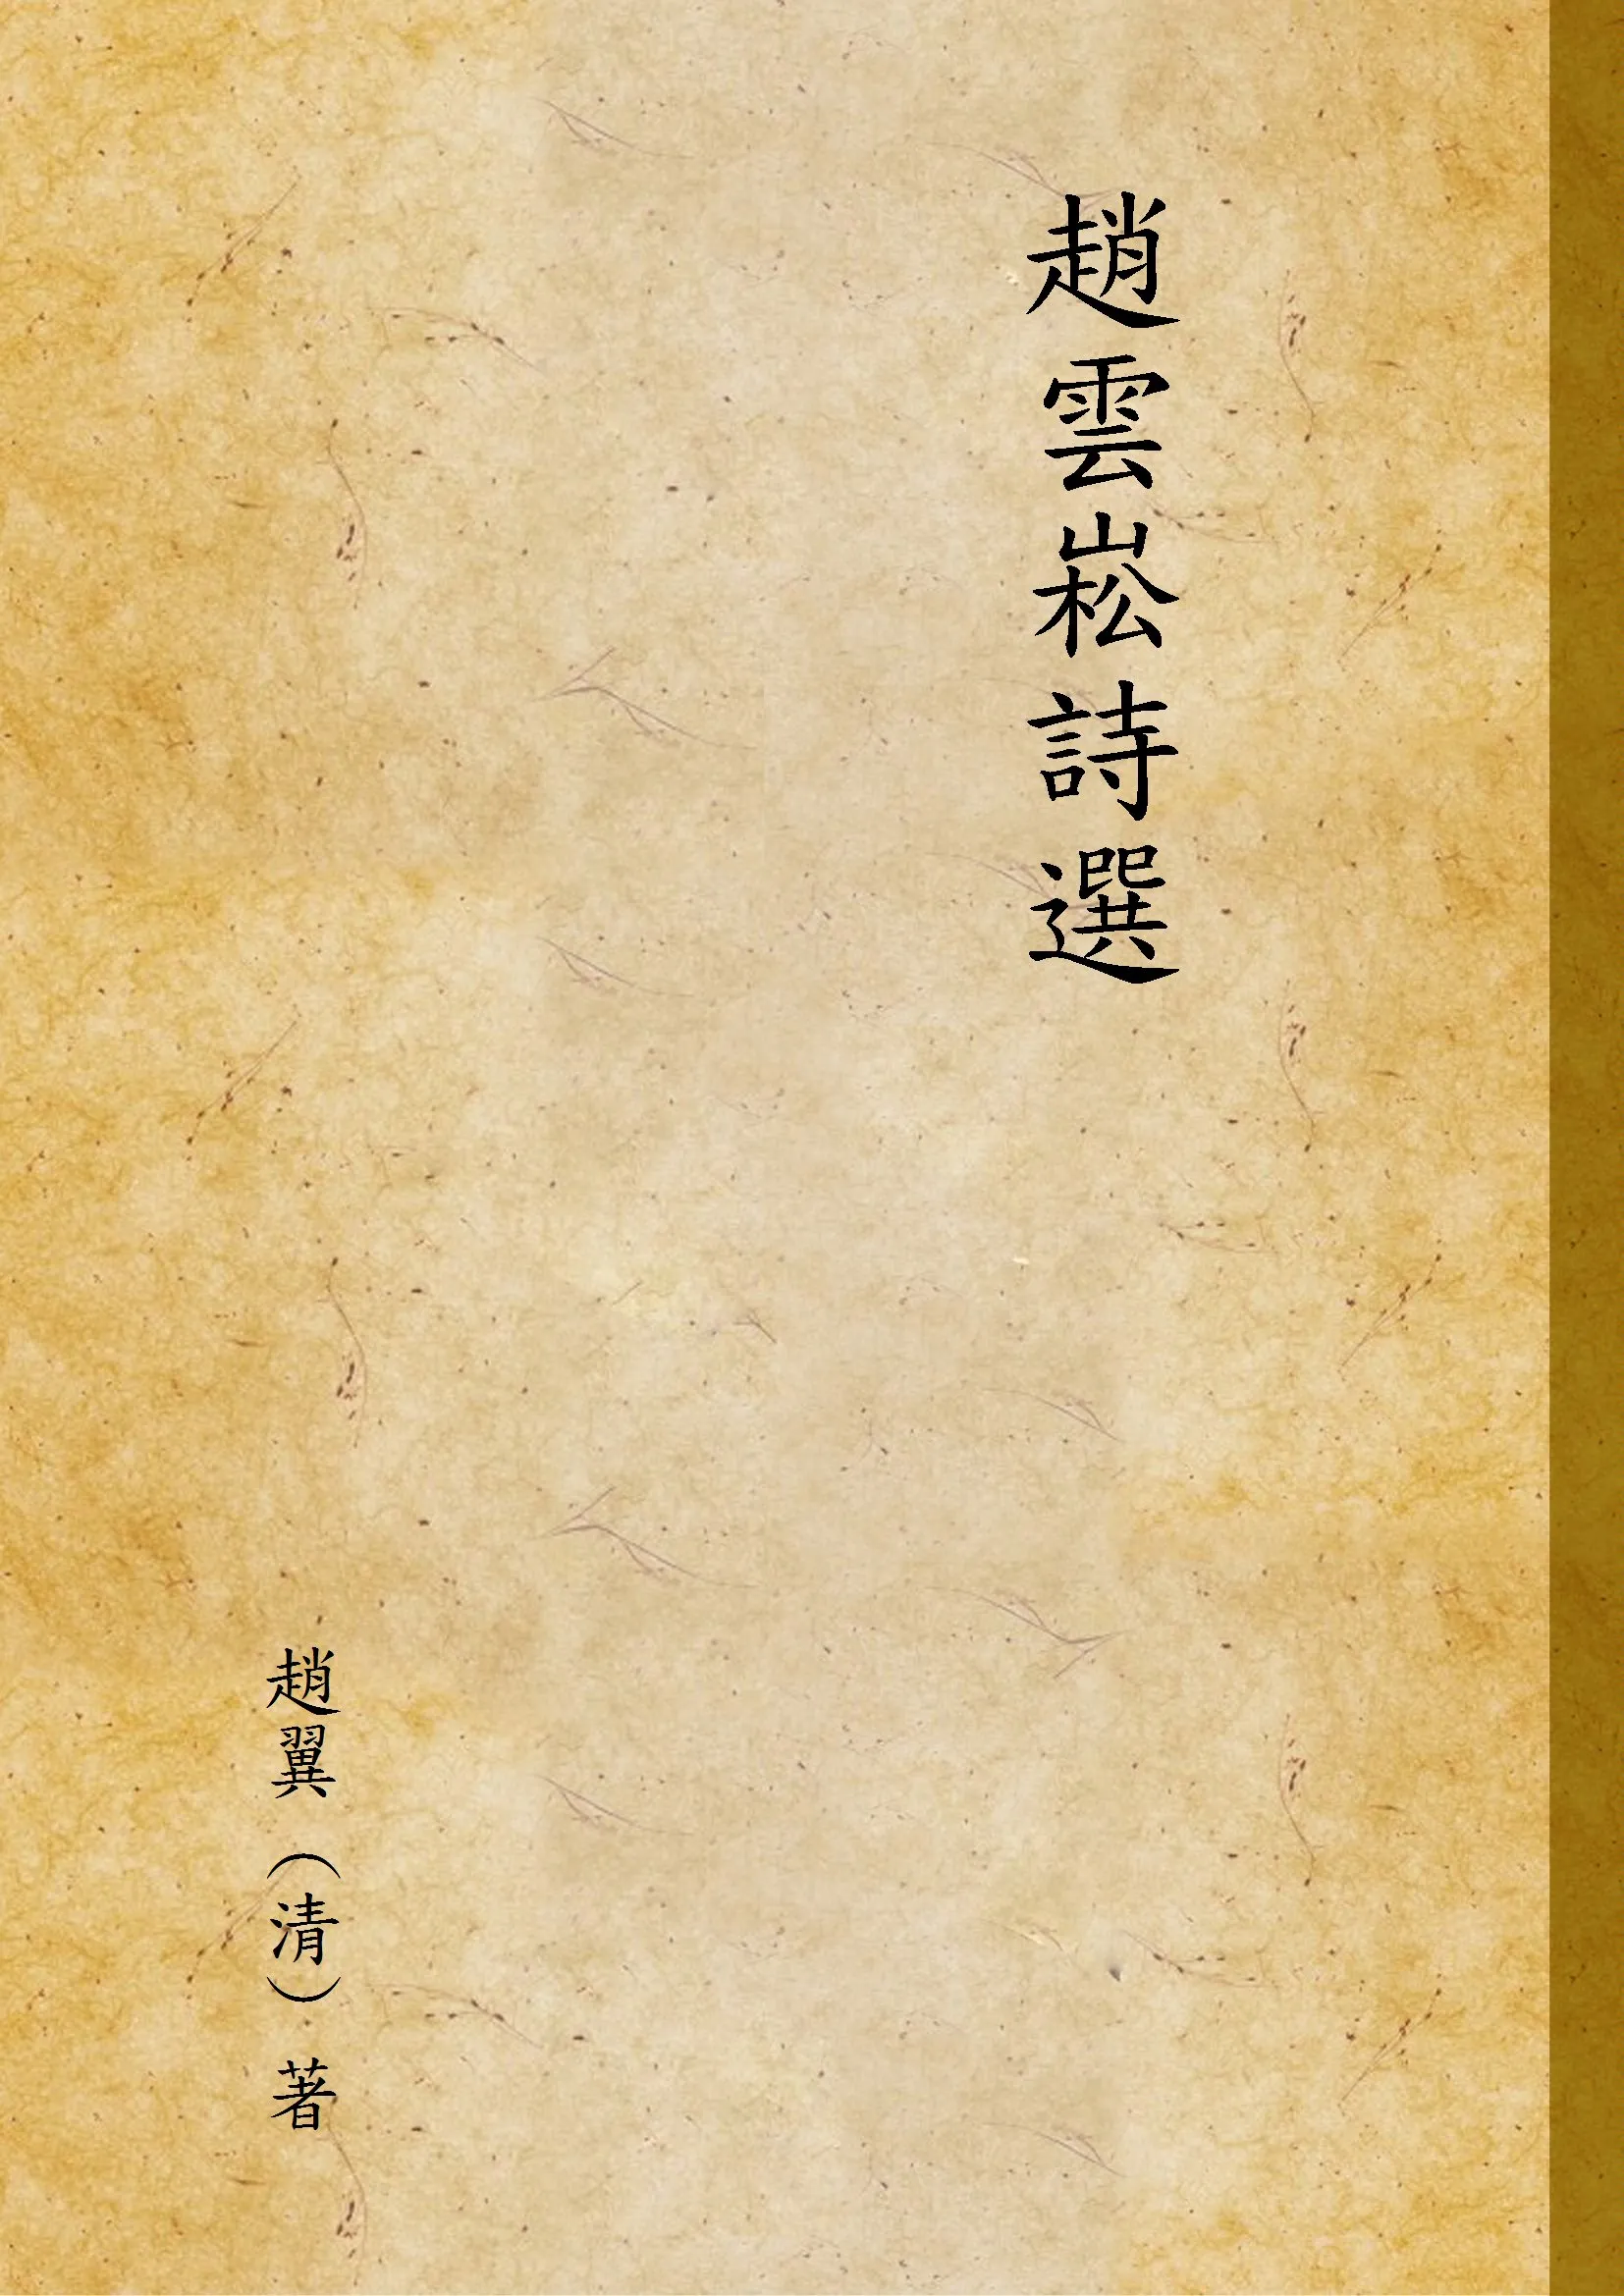 趙雲崧詩選
趙翼（清）著